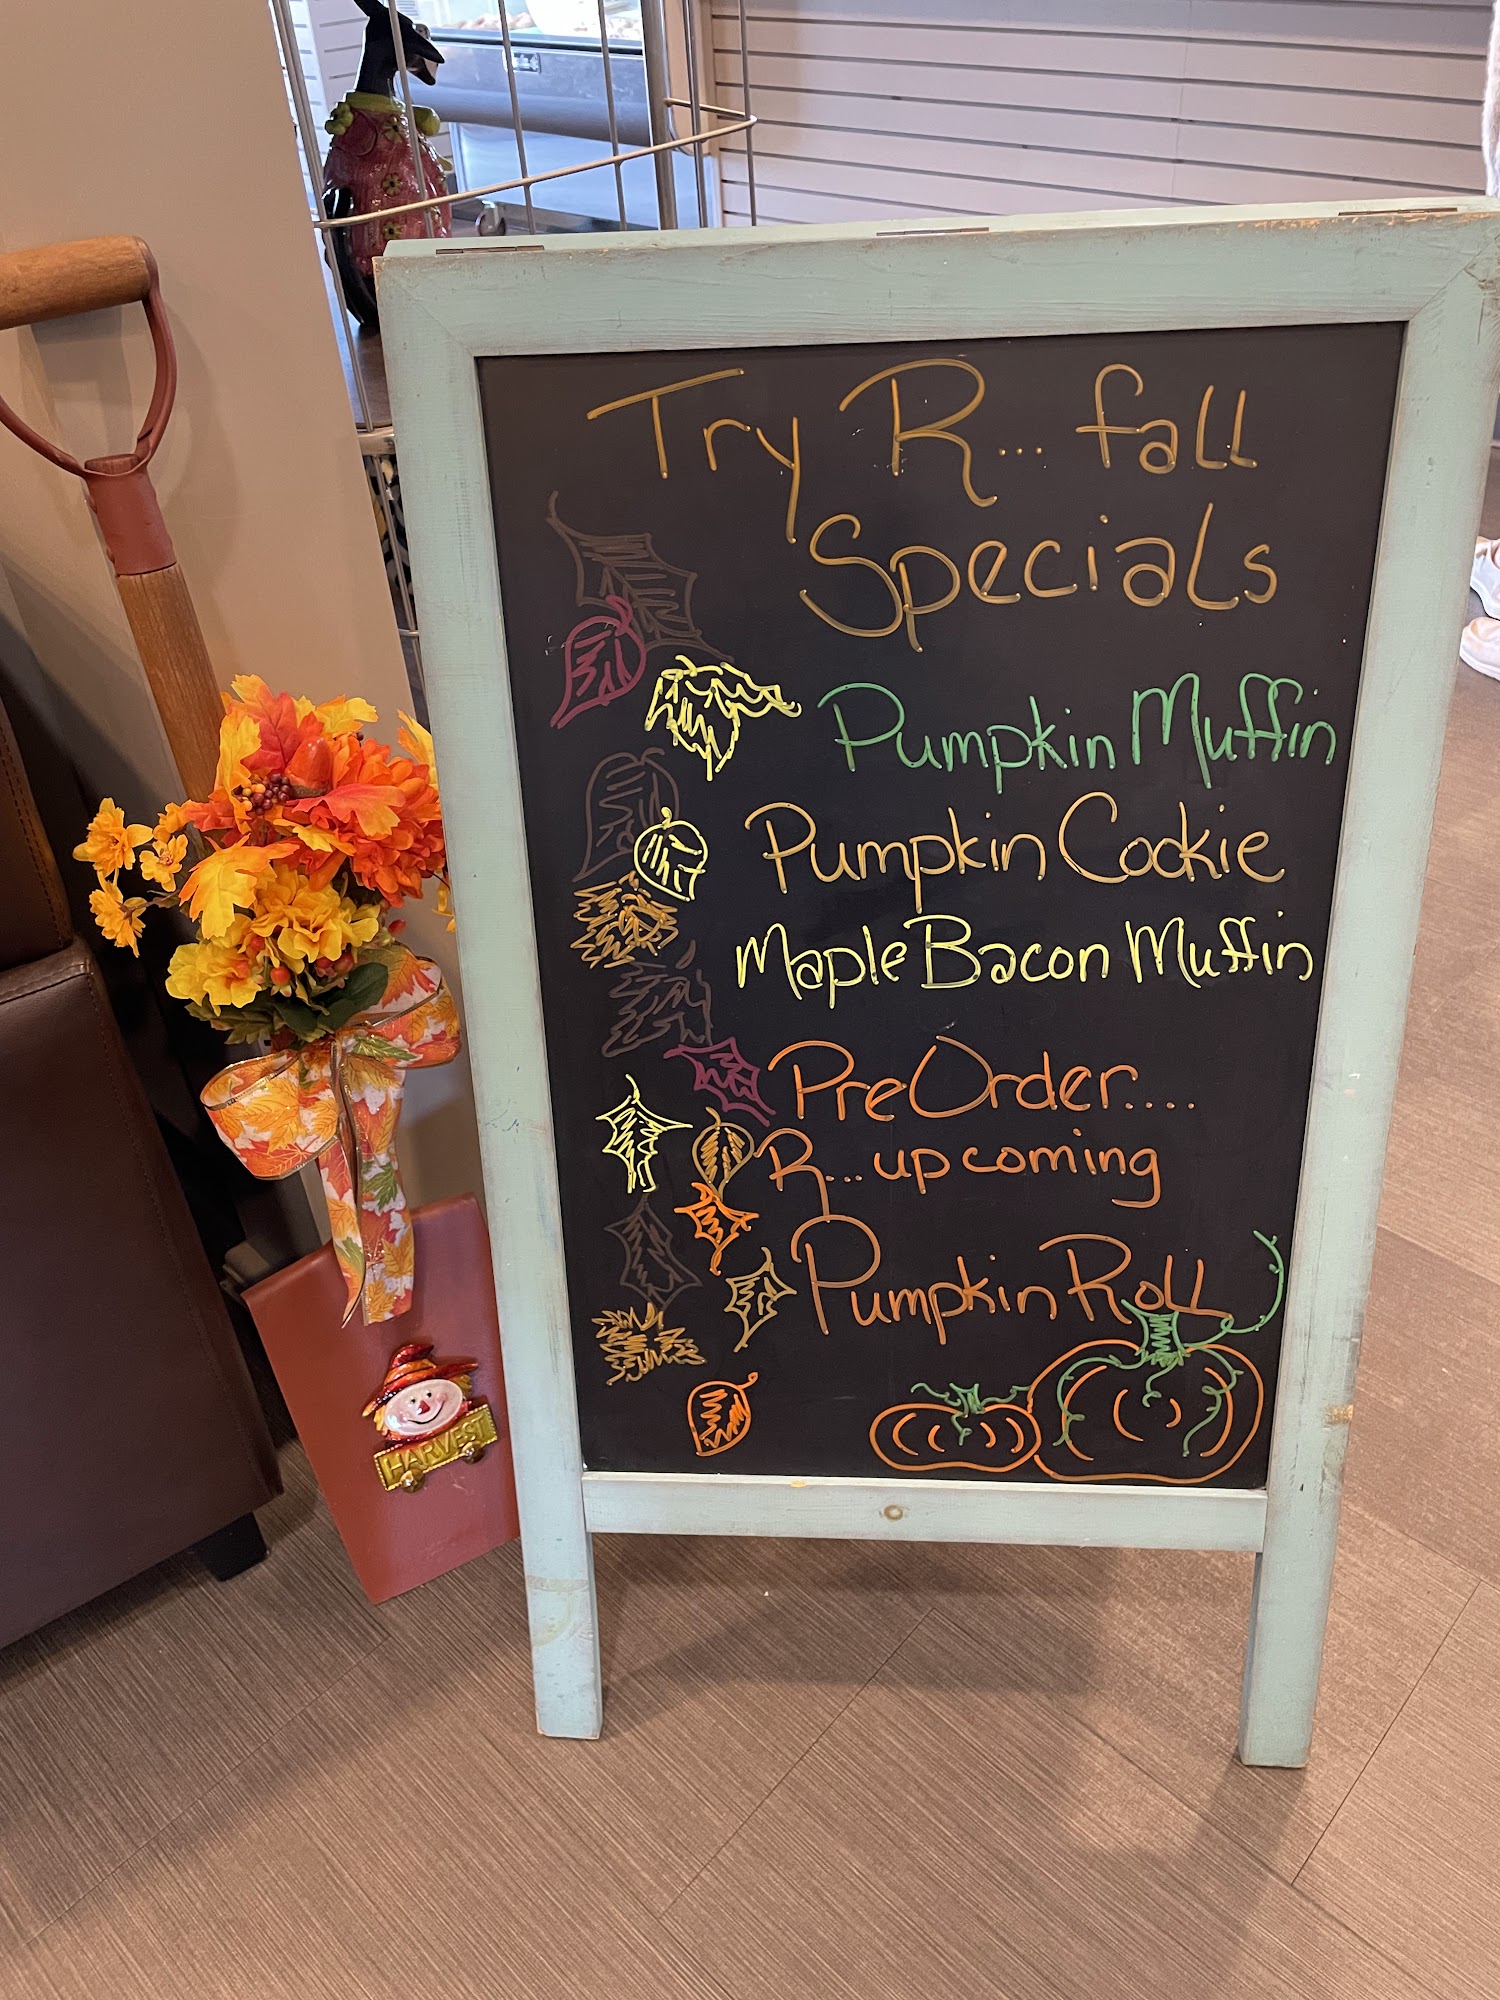 Try R... fall
Specials
Pumpkin Muffin
Pumpkin Cookie
Maple Bacon Muffin
PreOrder....
R... upcoming
Pumpkin Roll
HARVEST